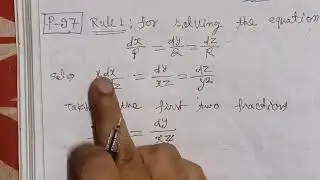 P-27 Rule 1; for solving the equation
dx/P = dy/Q = dz/R
xdx/ z = dy/xz = dz/yz
the first two fractions
= dy/xz